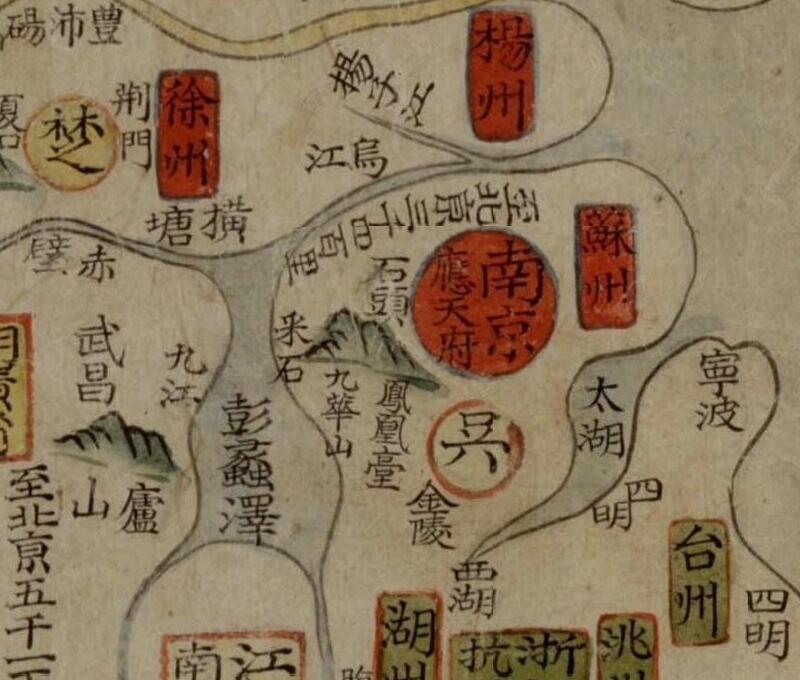 豊沛碭
楊州
楊子江
徐州
荆門
楚
烏江
橫塘
至北京三千四百里
蘇州
南京
應天府
石頭
赤壁
武昌
九江
采石
九華山
鳳凰臺
吳
太湖
寧波
彭蠡澤
廬山
金陵
四明
至北京五千一百
西湖
台州
四明
湖州
浙
抗
洮州
江
南